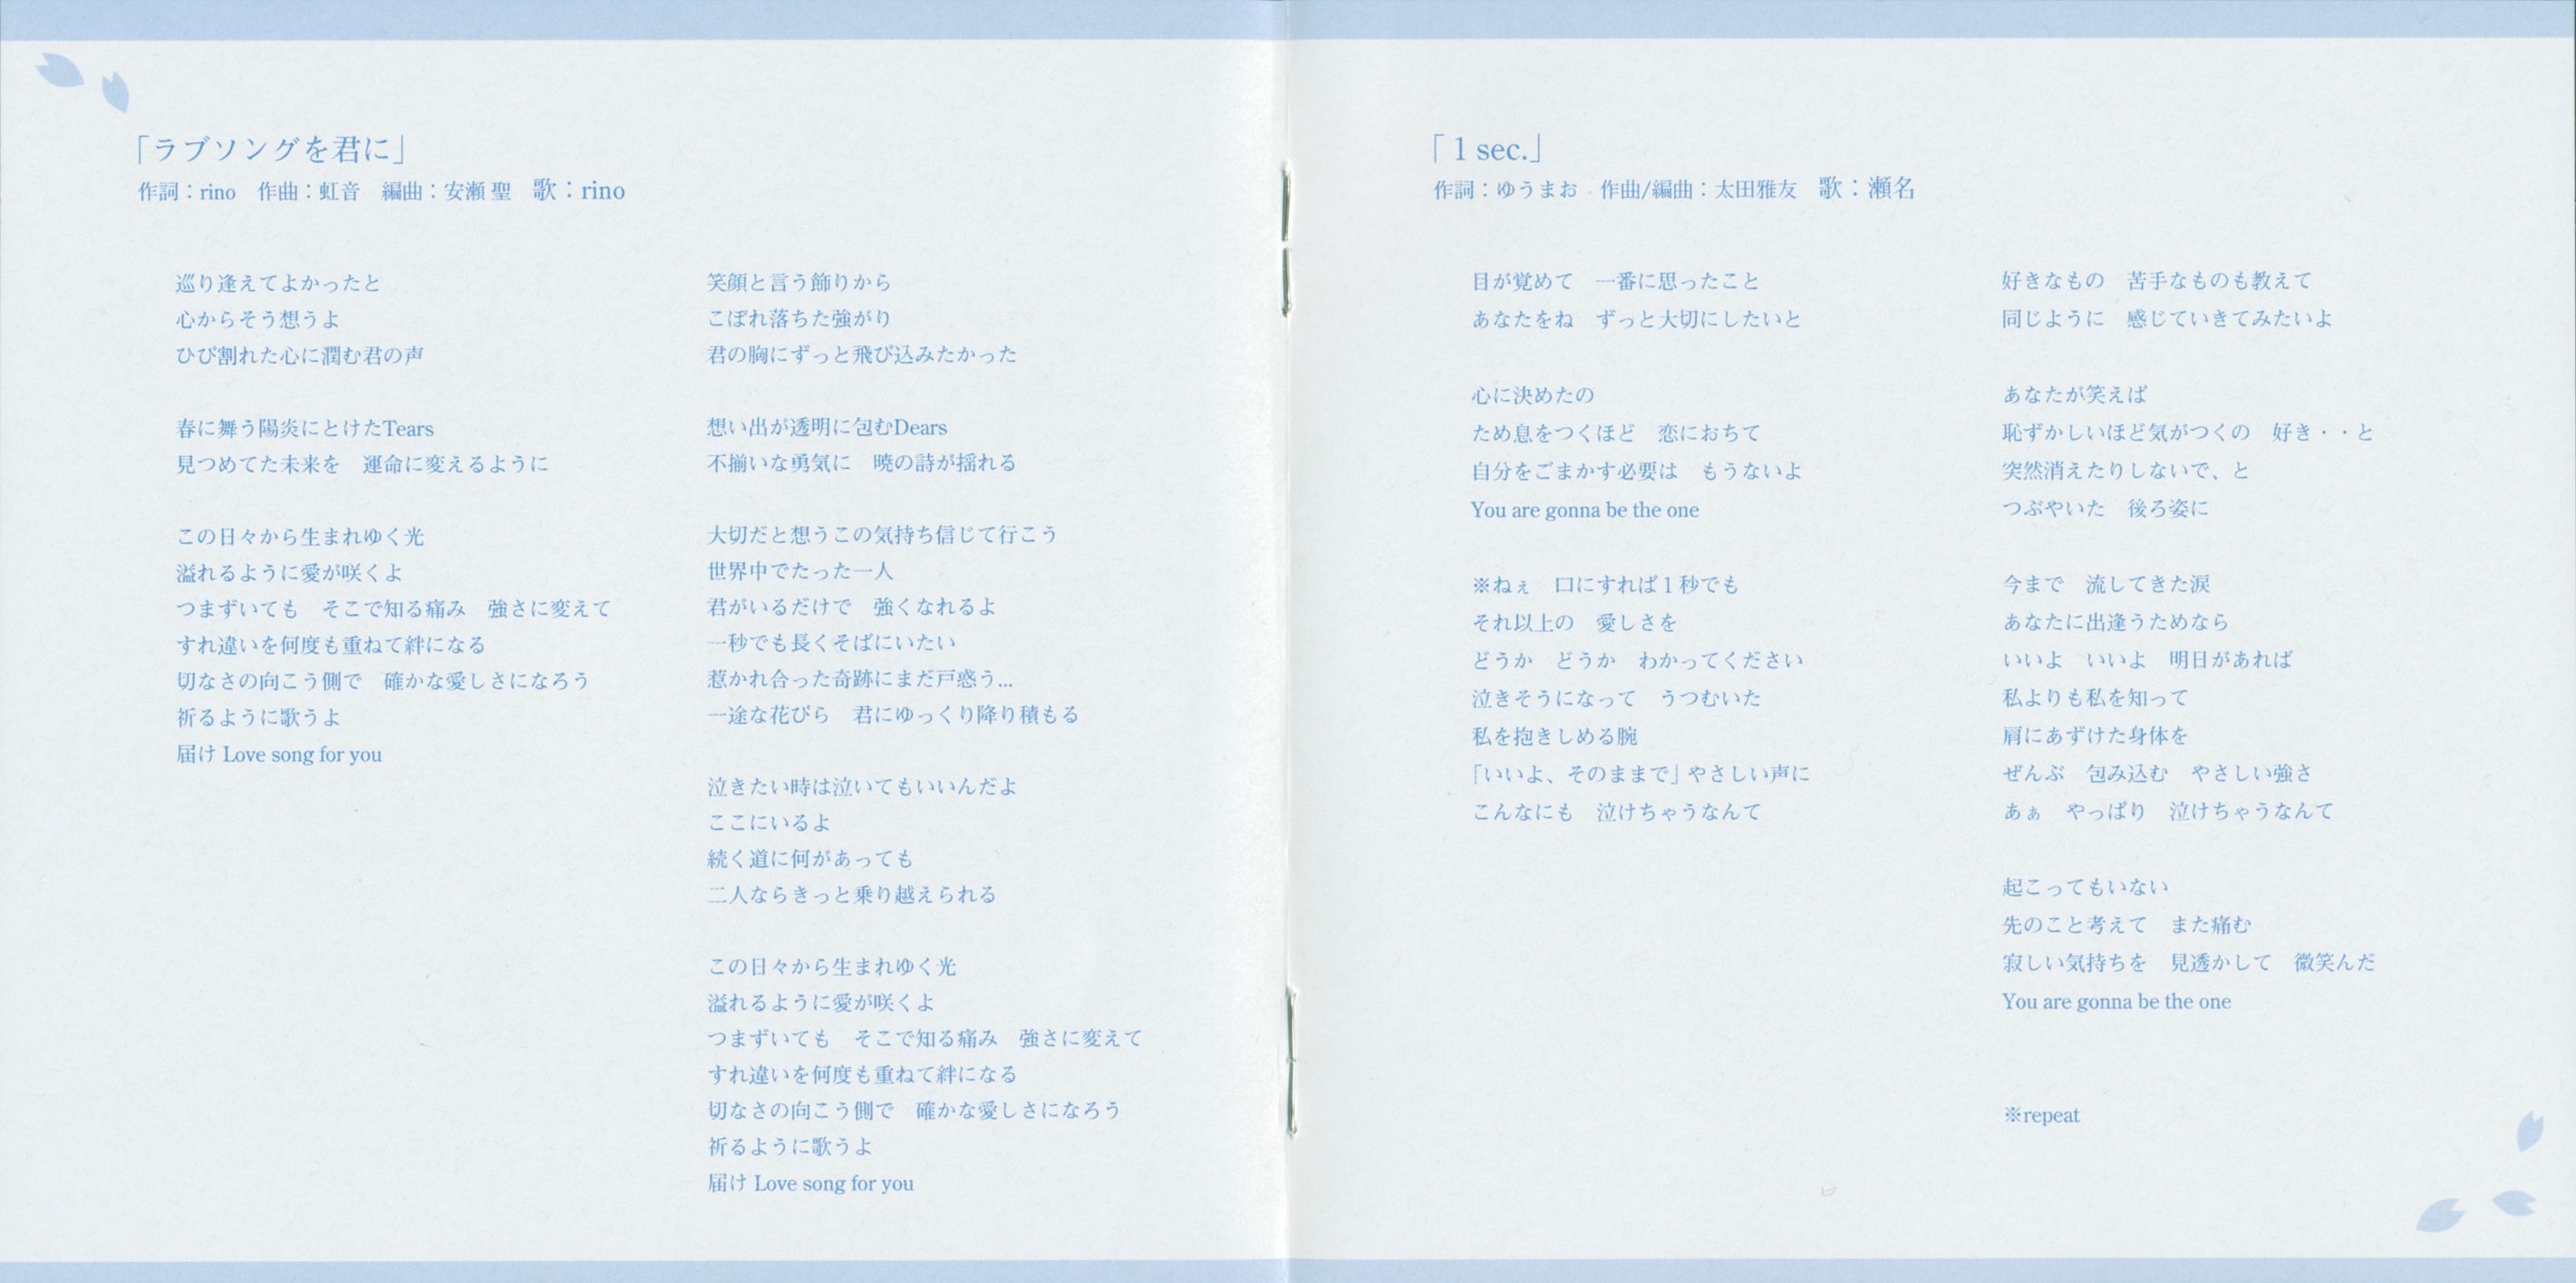 「ラブソングを君に」
作詞：rino　作曲：虹音　編曲：安瀬 聖　歌：rino
巡り逢えてよかったと
心からそう想うよ
ひび割れた心に潤む君の声
春に舞う陽炎にとけたTears
見つめてた未来を　運命に変えるように
この日々から生まれゆく光
溢れるように愛が咲くよ
つまずいても　そこで知る痛み　強さに変えて
すれ違いを何度も重ねて絆になる
切なさの向こう側で　確かな愛しさになろう
祈るように歌うよ
届け Love song for you
笑顔と言う飾りから
こぼれ落ちた強がり
君の胸にずっと飛び込みたかった
想い出が透明に包むDears
不揃いな勇気に　暁の詩が揺れる
大切だと想うこの気持ち信じて行こう
世界中でたった一人
君がいるだけで　強くなれるよ
一秒でも長くそばにいたい
惹かれ合った奇跡にまだ戸惑う...
一途な花びら　君にゆっくり降り積もる
泣きたい時は泣いてもいいんだよ
ここにいるよ
続く道に何があっても
二人ならきっと乗り越えられる
この日々から生まれゆく光
溢れるように愛が咲くよ
つまずいても　そこで知る痛み　強さに変えて
すれ違いを何度も重ねて絆になる
切なさの向こう側で　確かな愛しさになろう
祈るように歌うよ
届け Love song for you
「1 sec.」
作詞：ゆうまお　作曲/編曲：太田雅友　歌：瀬名
目が覚めて　一番に思ったこと
あなたをね　ずっと大切にしたいと
心に決めたの
ため息をつくほど　恋におちて
自分をごまかす必要は　もうないよ
You are gonna be the one
※ねぇ　口にすれば１秒でも
それ以上の　愛しさを
どうか　どうか　わかってください
泣きそうになって　うつむいた
私を抱きしめる腕
「いいよ、そのままで」やさしい声に
こんなにも　泣けちゃうなんて
好きなもの　苦手なものも教えて
同じように　感じていきてみたいよ
あなたが笑えば
恥ずかしいほど気がつくの　好き・・と
突然消えたりしないで、と
つぶやいた　後ろ姿に
今まで　流してきた涙
あなたに出逢うためなら
いいよ　いいよ　明日があれば
私よりも私を知って
肩にあずけた身体を
ぜんぶ　包み込む　やさしい強さ
あぁ　やっぱり　泣けちゃうなんて
起こってもいない
先のこと考えて　また痛む
寂しい気持ちを　見透かして　微笑んだ
You are gonna be the one
※repeat